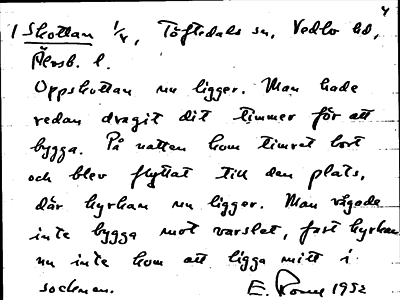 4
1 Skottan 1/4, Töftedals sn, Vedbo hd,
Älvsb. l.
Oppskottan nu ligger. Man hade
redan dragit dit timmer för att
bygga. På natten kom timret bort
och blev flyttat till den plats,
där kyrkan nu ligger. Man vågade
inte bygga mot varslet, fast kyrkan
nu inte kom att ligga mitt i
socknen.
E. 1952